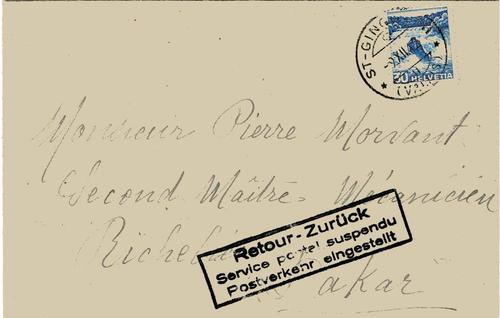 ST-GING
XII
30 HELVETIA
Monsieur Pierre Morvant
Second Maître-Mécanicien
Richel
Dakar
Retour-Zurück
Service postal suspendu
Postverkehr eingestellt